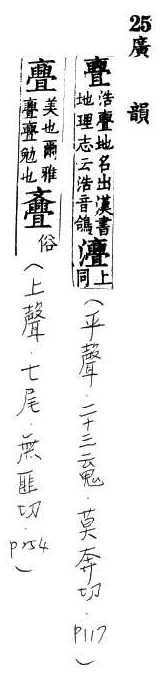 25廣韻
亹浩亹地名出漢書地理志云浩音鴿𤅣上同(平聲．二十三魂．莫奔切．P117)
亹美也爾雅亹亹勉也斖俗(上聲．七尾．無匪切．P254)